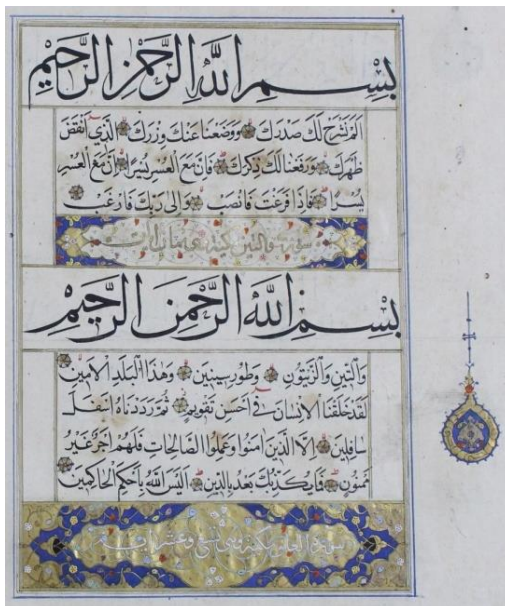 بِسْمِ اللَّهِ الرَّحْمَٰنِ الرَّحِيمِ
اَلَمْ نَشْرَحْ لَكَ صَدْرَكَ وَوَضَعْنَا عَنْكَ وِزْرَكَ الَّذِي اَنْقَضَ
ظَهْرَكَ وَرَفَعْنَا لَكَ ذِكْرَكَ فَاِنَّ مَعَ الْعُسْرِ يُسْرًا اِنَّ مَعَ الْعُسْرِ
يُسْرًا فَاِذَا فَرَغْتَ فَانْصَبْ وَاِلَى رَبِّكَ فَارْغَبْ
سورة والتين مكية وهي ثمان ايات
بِسْمِ اللَّهِ الرَّحْمَنِ الرَّحِيمِ
وَالتِّينِ وَالزَّيْتُونِ وَطُورِ سِينِينَ وَهَذَا الْبَلَدِ الْاَمِينِ
لَقَدْ خَلَقْنَا الْاِنْسَانَ فِي اَحْسَنِ تَقْوِيمٍ ثُمَّ رَدَدْنَاهُ اَسْفَلَ
سَافِلِينَ اِلَّا الَّذِينَ اٰمَنُوا وَعَمِلُوا الصَّالِحَاتِ فَلَهُمْ اَجْرٌ غَيْرُ
مَمْنُونٍ فَمَا يُكَذِّبُكَ بَعْدُ بِالدِّينِ اَلَيْسَ اللَّهُ بِاَحْكَمِ الْحَاكِمِينَ
سورة العلق مكية وهي